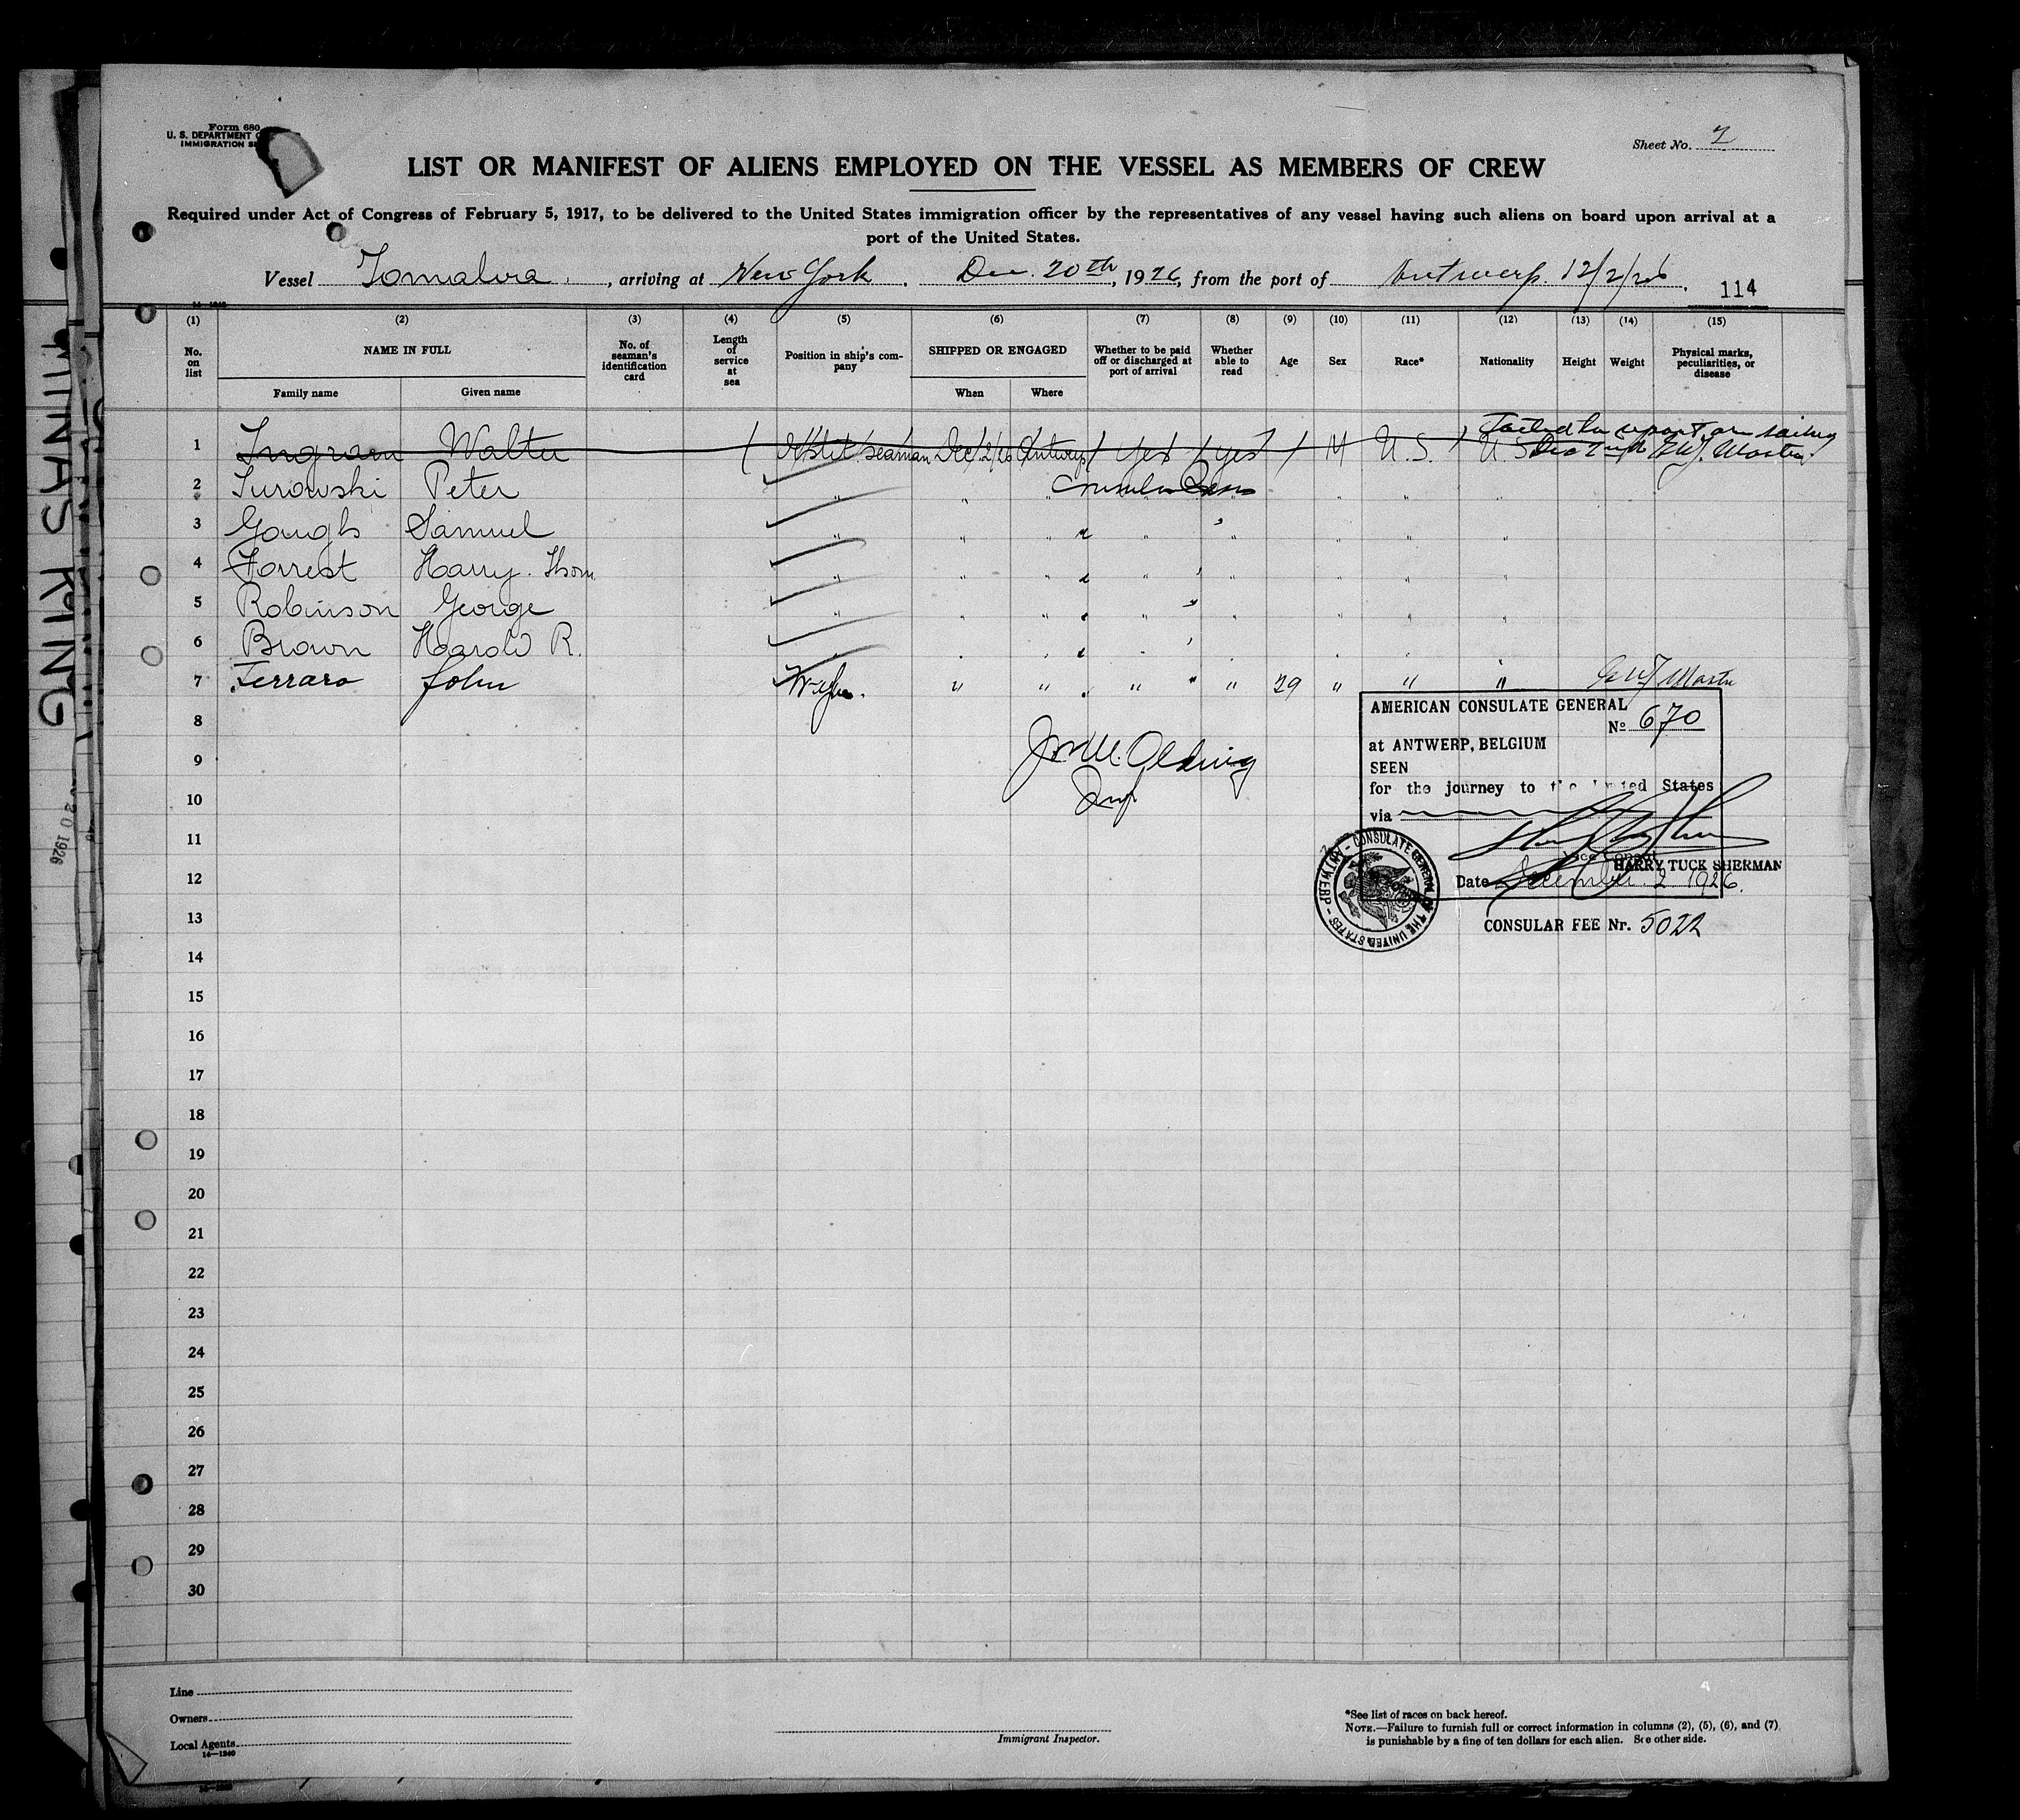 Form 680
U. S. DEPARTMENT
IMMIGRATION
Sheet No. 2
LIST OR MANIFEST OF ALIENS EMPLOYED ON THE VESSEL AS MEMBERS OF CREW
Required under Act of Congress of February 5, 1917, to be delivered to the United States immigration officer by the representatives of any vessel having such aliens on board upon arrival at a
port of the United States.
Vessel Tomalva, arriving at New York. Dec. 20th, 1926, from the port of Antwerp. 12/2/26.
114
(1) (2) (3) (4) (5) (6) (7) (8) (9) (10) (11) (12) (13) (14) (15)
No. on list NAME IN FULL No. of seaman's identification card Length of service at sea Position in ship's company SHIPPED OR ENGAGED Whether to be paid off or discharged at port of arrival Whether able to read Age Sex Race* Nationality Height Weight Physical marks, peculiarities, or disease
Family name Given name When Where
1 Ingram Walter seaman Dec/2/26 Antwerp yes yes M U.S. U.S. Failed to report on sailing Dec 2nd Master
2 Surowski Peter " " " " " "
3 Gough Samuel " " " " " " " " "
4 Forrest Harry. Thom " " " " " " " " "
5 Robinson George " " " " " " " "
6 Brown Harold R. " " " " " " "
7 Ferraro John " " " " 29 " " " Master
8
9
10
11
12
13
14
15
16
17
18
19
20
21
22
23
24
25
26
27
28
29
30
Olding
AMERICAN CONSULATE GENERAL
No 670
at ANTWERP, BELGIUM
SEEN
for the journey to the United States
via
Vice Consul
HARRY TUCK SHERMAN
Date December 2 1926.
CONSULATE GENERAL OF THE UNITED STATES - ANTWERP -
CONSULAR FEE Nr. 5022
MINAS KING
20 1926
Line
Owners
Local Agents
14—1240
Immigrant Inspector.
*See list of races on back hereof.
NOTE.—Failure to furnish full or correct information in columns (2), (5), (6), and (7)
is punishable by a fine of ten dollars for each alien. See other side.